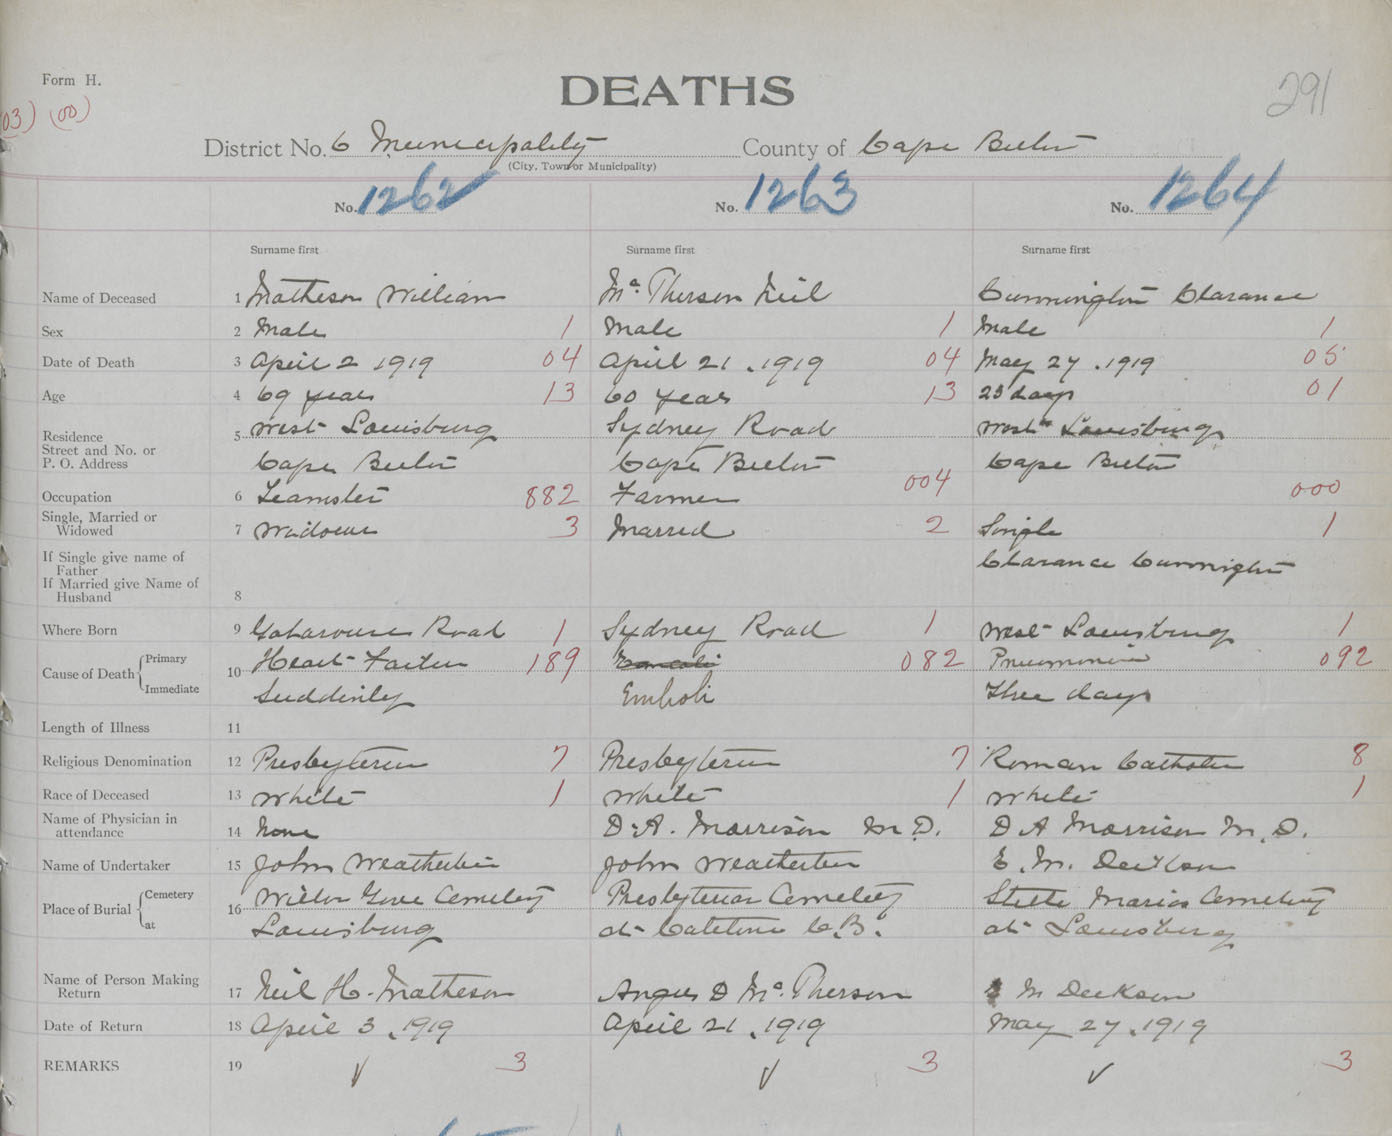 Form H.
DEATHS
291
03) (00)
District No. 6 Municipality County of Cape Breton
(City, Town or Municipality)
No. 1262 No. 1263 No. 1264
Surname first Surname first Surname first
Name of Deceased 1 Matheson William McPherson Neil Cunnington Clarance
Sex 2 Male 1 Male 1 Male 1
Date of Death 3 April 2, 1919 04 April 21, 1919 04 May 27, 1919 05
Age 4 69 years 13 60 years 13 23 days 01
Residence
Street and No. or
P. O. Address
5 West Louisburg Sydney Road West Louisburg
Cape Breton Cape Breton Cape Breton
Occupation 6 Teamster 882 Farmer 004 000
Single, Married or
Widowed 7 Widower 3 Marred 2 Single 1
If Single give name of
Father
If Married give Name of
Husband 8 Clarance
Where Born 9 Gabarouse Road 1 Sydney Road 1 West Louisburg 1
Cause of Death Primary
Immediate
10 Heart Failure 189 082 Pneumonia 092
Suddenly Emboli Three days
Length of Illness 11
Religious Denomination 12 Presbyterian 7 Presbyterian 7 Roman Catholic 8
Race of Deceased 13 White 1 White 1 White 1
Name of Physician in
attendance 14 None D. A. Morrison M.D. D A Morrison M.D.
Name of Undertaker 15 John Weatherbie John Weatherbie E. M. Dickson
Place of Burial Cemetery
at
16 Cemetery Presbyterian Cemetery Stella Maria Cemetery
Louisburg at Catalone C.B. at Louisburg
Name of Person Making
Return 17 Neil H. Matheson Angus D McPherson E M Dickson
Date of Return 18 April 3, 1919 April 21, 1919 May 27, 1919
REMARKS 19 3 3 3